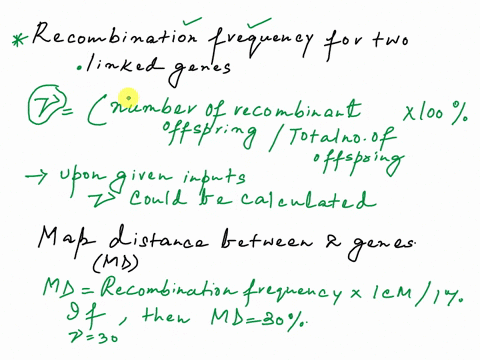 * Recombination frequency for two
. linked genes
r = ( number of recombinant offspring / Total no. of offspring × 100 %
→ upon given inputs
r could be calculated
Map distance between 2 genes
(MD)
MD = Recombination frequency × 1cM / 1%.
If r = 30, then MD = 30%.